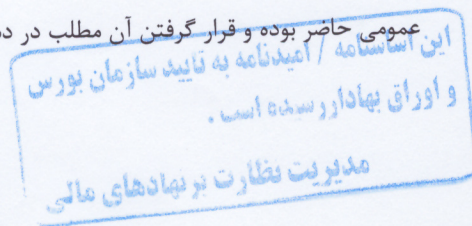 عمومی حاضر بوده و قرار گرفتن آن مطلب در د
این اساسنامه / امیدنامه به تایید سازمان بورس
و اوراق بهادار رسیده است .
مدیریت نظارت بر نهادهای مالی